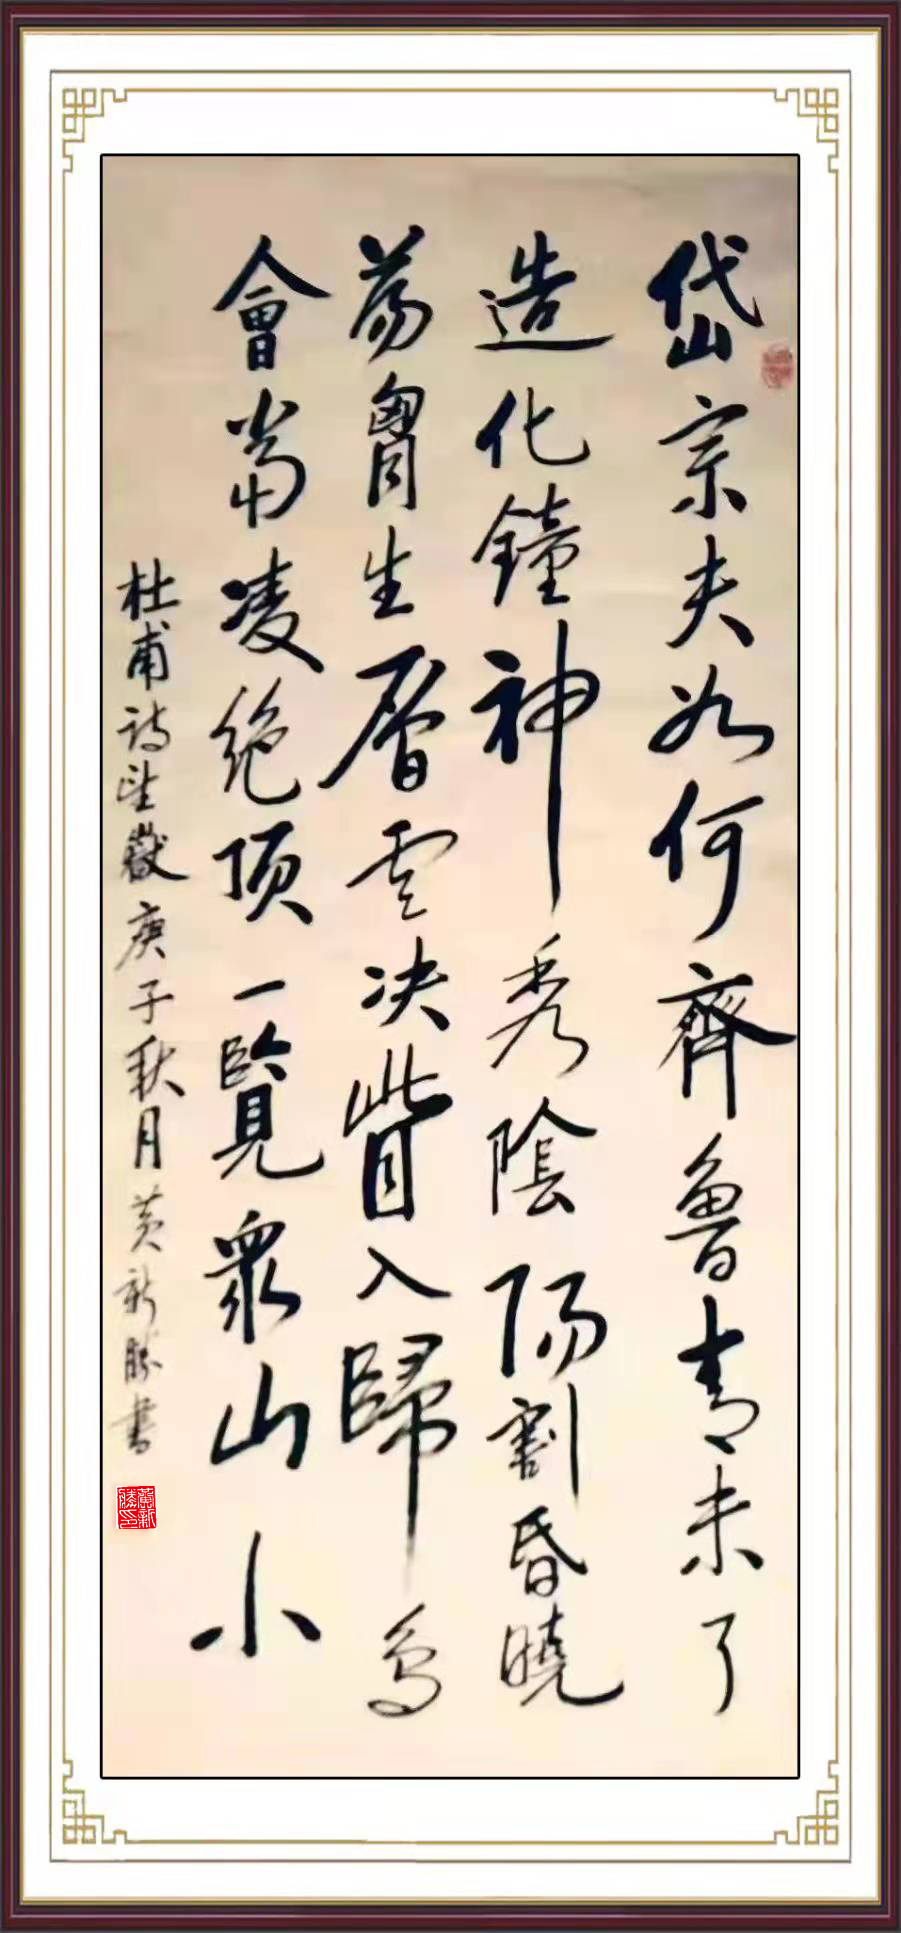 岱宗夫如何齊魯青未了
造化鐘神秀陰陽割昏曉
蕩胷生層雲决眥入歸鳥
會當凌絶顶一覽眾山小
杜甫詩望嶽庚子秋月黄新勝書
黄新勝印